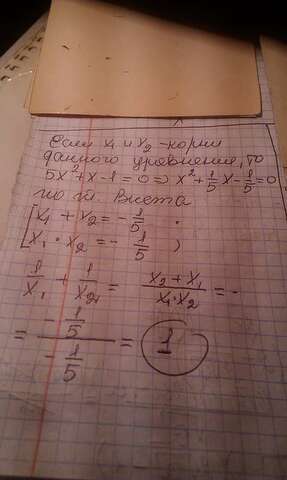 Если x₁ и x₂ - корни
данного уравнения, то
5x² + x - 1 = 0 => x² + 1/5 x - 1/5 = 0
по т. Виета
[ x₁ + x₂ = - 1/5
[ x₁ · x₂ = - 1/5
1/x₁ + 1/x₂ = (x₂ + x₁)/(x₁ · x₂) = -
= (- 1/5)/(- 1/5) = 1